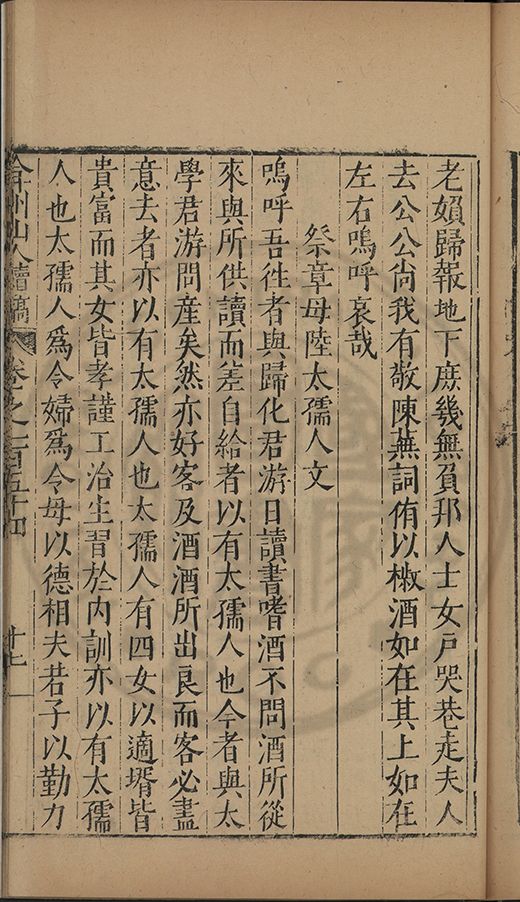 老媍歸報地下庶幾無負邦人士女戸哭巷走夫人
去公公尙我有敬陳蕪詞侑以椒酒如在其上如在
左右嗚呼哀哉
祭章母陸太孺人文
嗚呼吾徃者與歸化君游日讀書嗜酒不問酒所從
來與所供讀而差自給者以有太孺人也今者與太
學君游問産矣然亦好客及酒酒所出良而客必盡
意去者亦以有太孺人也太孺人有四女以適壻皆
貴富而其女皆孝謹工治生習於内訓亦以有太孺
人也太孺人爲令婦爲令母以德相夫若子以勤力
弇州山人續稿 卷之一百五十四